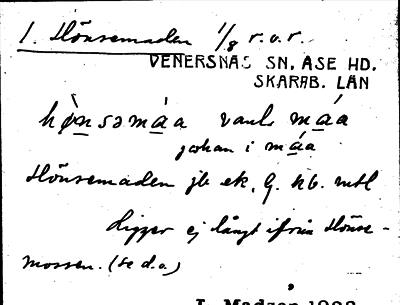 1. Hönsemaden 1/8 r.o.r.
VENERSNÄS SN, ÅSE HD.
SKARAB. LÄN
hǿnsəmáa vanl. máa
johan i máa
Hönsemaden jb ek. G. kb. mtl
Ligger ej långt ifrån Hönse-
mossen. (se d.o.)